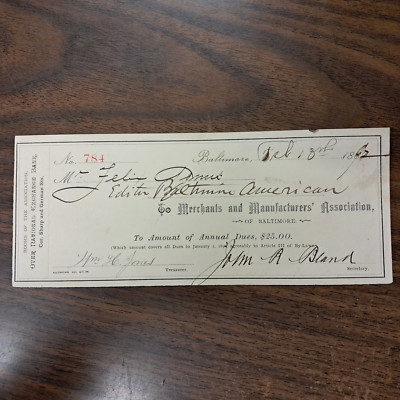 No. 784
Baltimore, Feb 13th 1892
Mr. Felix
Editor Baltimore American
To Merchants and Manufacturers' Association,
OF BALTIMORE.
To Amount of Annual Dues, $25.00.
(Which amount covers all Dues to January 1, agreeably to Article III of By-Laws.)
Wm H. Jones
Treasurer.
John R Bland
Secretary.
OF THE ASSOCIATION,
NATIONAL EXCHANGE BANK,
Cor. Sharp and German Sts.